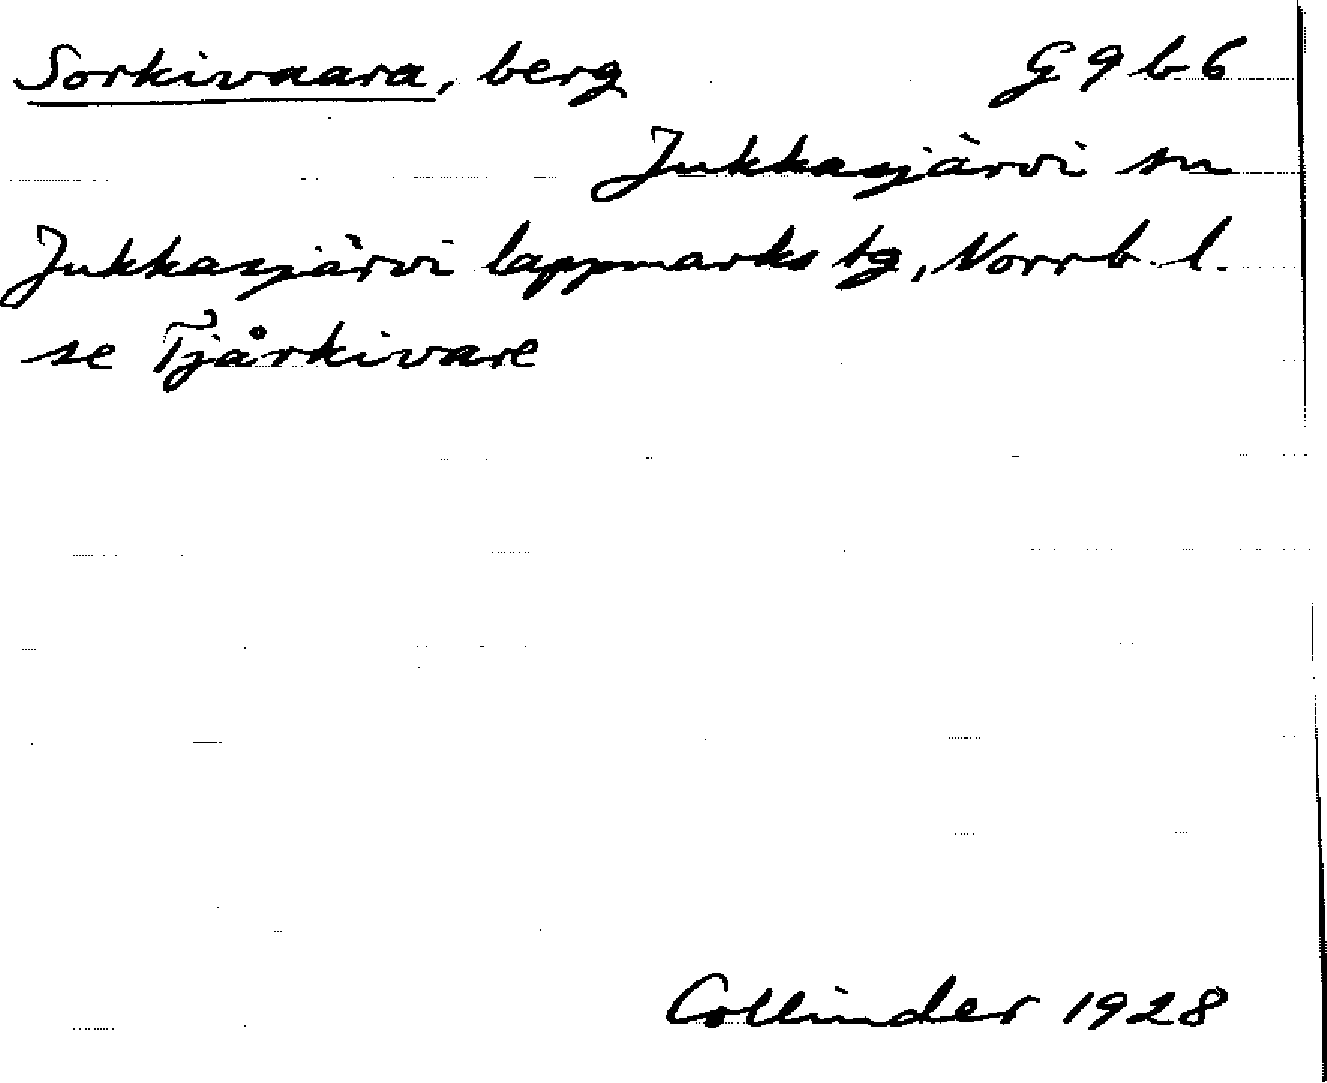 Sorkivaara, berg G 9 b 6
Jukkasjärvi sn
Jukkasjärvi lappmarks tg, Norrb. l.
se Tjårkivare
Collinder 1928